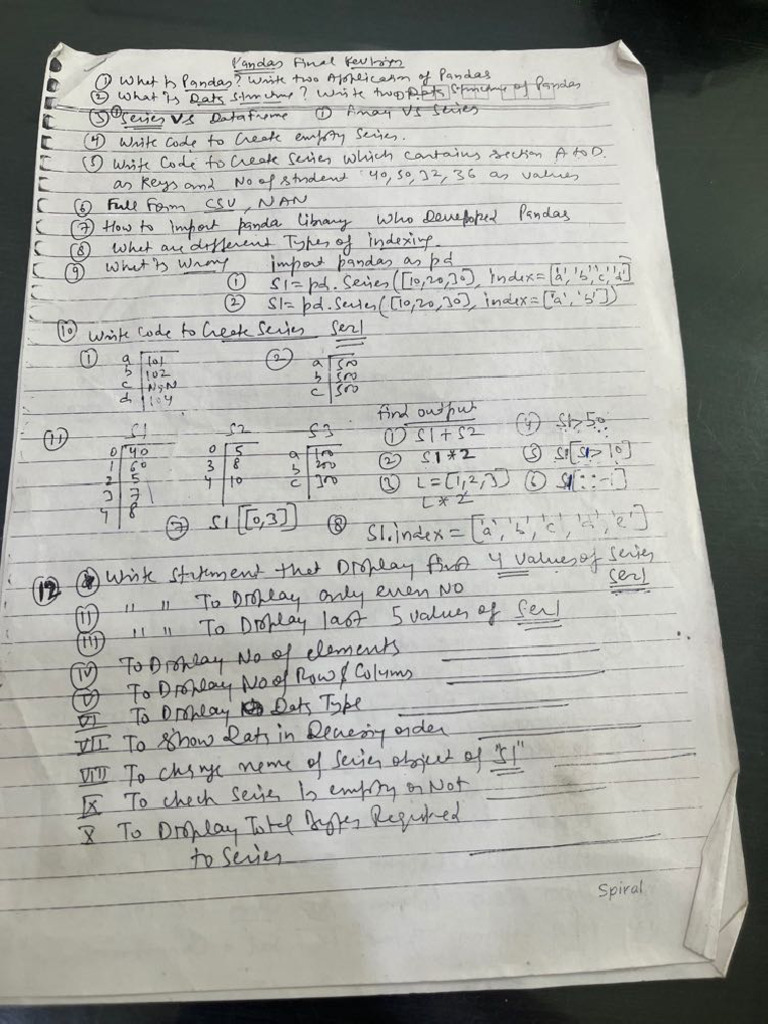 Pandas Final Revision
① What is Pandas? Write two Application of Pandas
② What is Data Structure? Write two Data Structure of Pandas
③ ① Series VS DataFrame ① Array VS Series
④ Write Code to Create empty Series.
⑤ Write Code to Create Series which contains section A to D.
as Keys and No of student 40, 50, 32, 36 as values
⑥ Full Form CSV, NAN
⑦ How to import panda library Who Developed Pandas
⑧ What are different Types of indexing
⑨ What is wrong import pandas as pd
① S1 = pd.Series([10,20,30], index=['a','b','c','d']
② S1= pd.Series([10,20,30], index=['a','b'])
⑩ Write Code to Create Series Ser1
① ②
a 101 a 500
b 102 b 500
c NaN c 500
d 104
find output
⑪ S1 S2 S3 ① S1+S2 ④ S1>50
0 40 0 5 a 100 ② S1*2 ⑤ S1[S1>10]
1 60 3 8 b 200
2 5 4 10 c 300 ③ L=[1,2,3] ⑥ S1[::-1]
3 7 L*2
4 8
⑦ S1[[0,3]] ⑧ S1.index=['a','b','c','d','e']
⑫ Write Statement that Display first 4 Values of Series Ser1
II " " To Display only even NO
III " " To Display last 5 values of Ser1
IV To Display No of elements
V To Display No of Row & Colums
VI To Display Data Type
VII To Show Data in order
VIII To change name of Series object of "S1"
IX To check Series is empty or Not
X To Display Total Bytes Required
to Series
Spiral